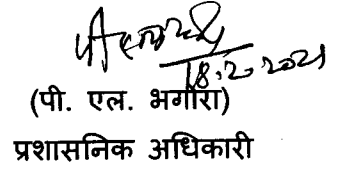 18.2.2021
(पी. एल. भगोरा)
प्रशासनिक अधिकारी